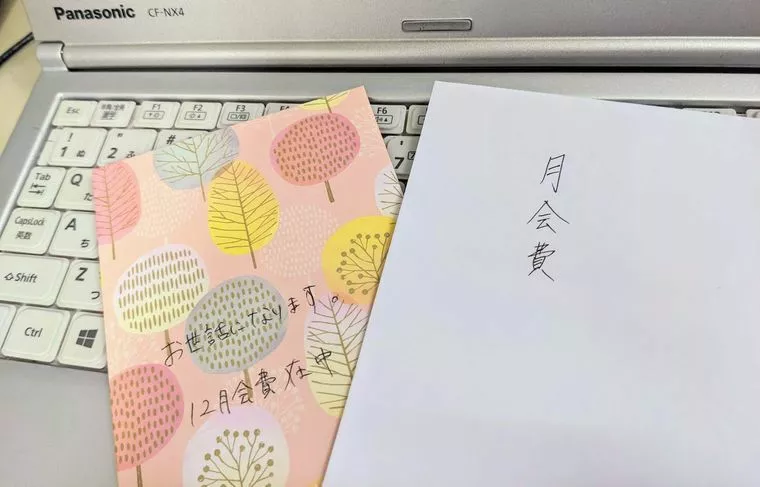 Panasonic CF-NX4
Esc
F1
F2
F3
F6
! 1 ぬ
" 2 ふ
#
7
Tab
Q た
CapsLock
英数
A ち
Shift
Z つ
Ctrl
お世話になります。
12月会費在中
月会費